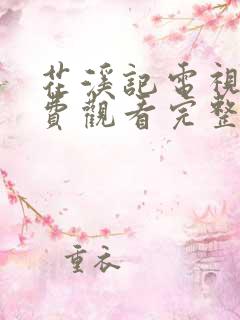 茌溪記電視
費觀看完整
重衣